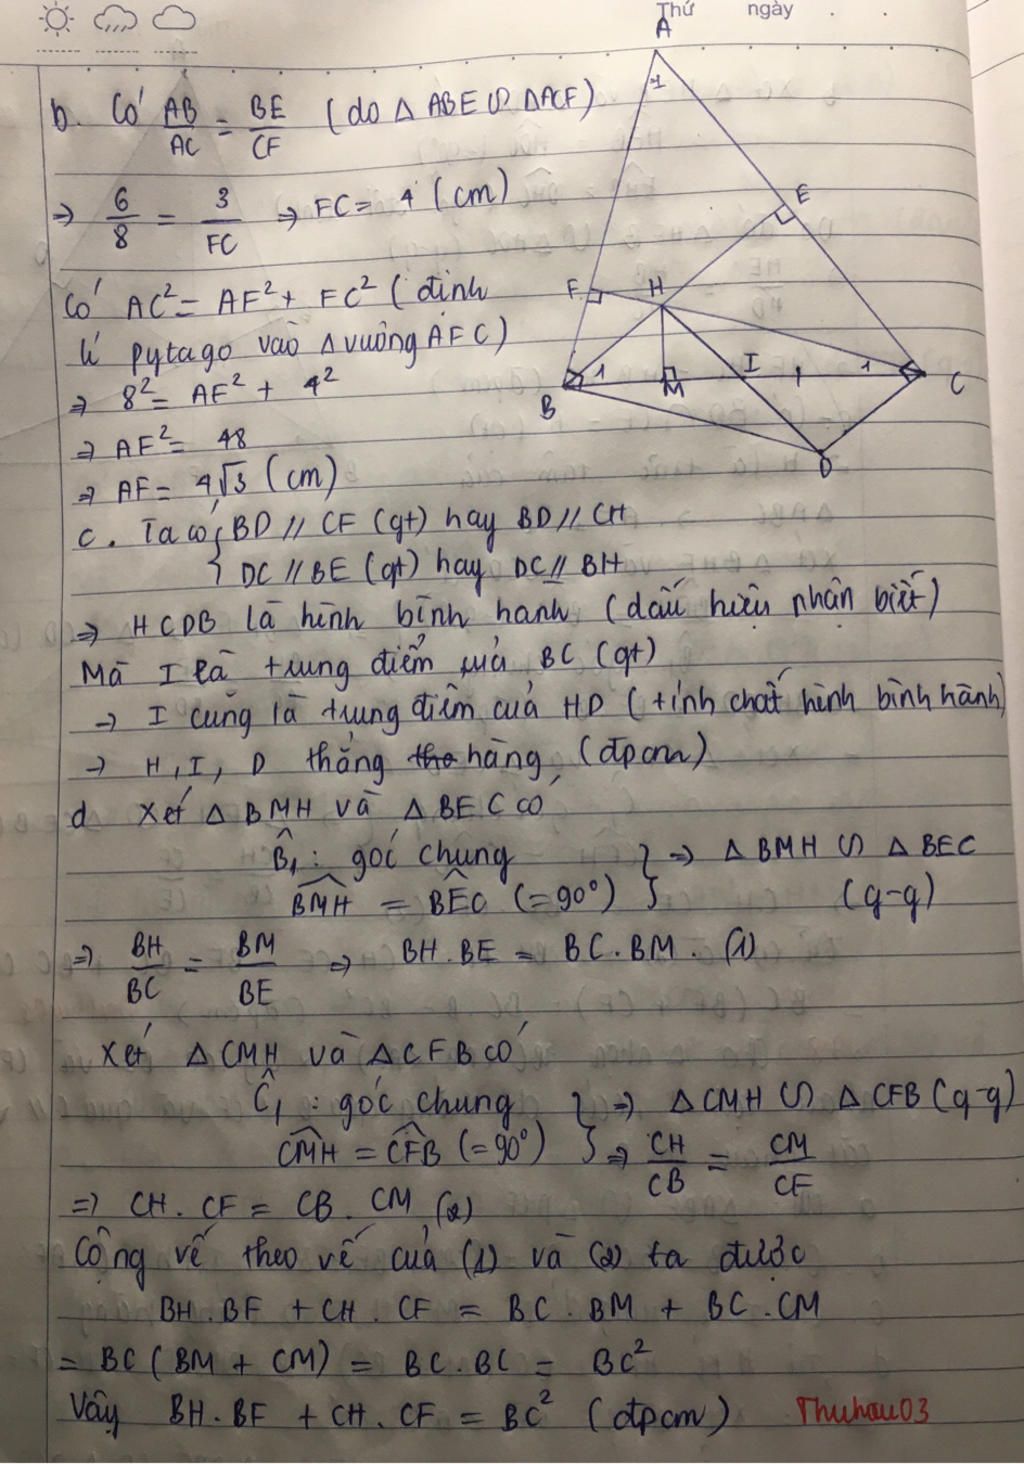 Thứ ngày
b. Có AB/AC = BE/CF (do Δ ABE ∽ ΔACF)
⇒ 6/8 = 3/FC ⇒ FC = 4 (cm)
Có AC² = AF² + FC² (định
lí pytago vào Δ vuông AFC)
⇒ 8² = AF² + 4²
⇒ AF² = 48
⇒ AF = 4√3 (cm)
A
1
E
F
H
B
1
M
I
1
C
D
c. Ta có { BD // CF (gt) hay BD // CH
DC // BE (gt) hay DC // BH
⇒ HCDB là hình bình hanh (dấu hiệu nhận biết)
Mà I là trung điểm của BC (gt)
→ I cũng là trung điểm của HD (tính chất hình bình hành)
→ H, I, D thẳng hàng (đpcm)
d Xét Δ BMH và Δ BEC có
B̂₁ : góc chung } ⇒ Δ BMH ∽ Δ BEC
BMH = BEC (=90°) } (g-g)
⇒ BH/BC = BM/BE ⇒ BH.BE = BC.BM. (1)
Xét Δ CMH và Δ CFB có
Ĉ₁ : góc chung } ⇒ Δ CMH ∽ Δ CFB (g-g)
CMH = CFB (=90°) } ⇒ CH/CB = CM/CF
⇒ CH. CF = CB. CM (2)
Cộng vế theo vế của (1) và (2) ta được
BH.BF + CH. CF = BC. BM + BC.CM
= BC(BM + CM) = BC.BC = BC²
Vậy BH.BF + CH. CF = BC² (đpcm) Thuhau03